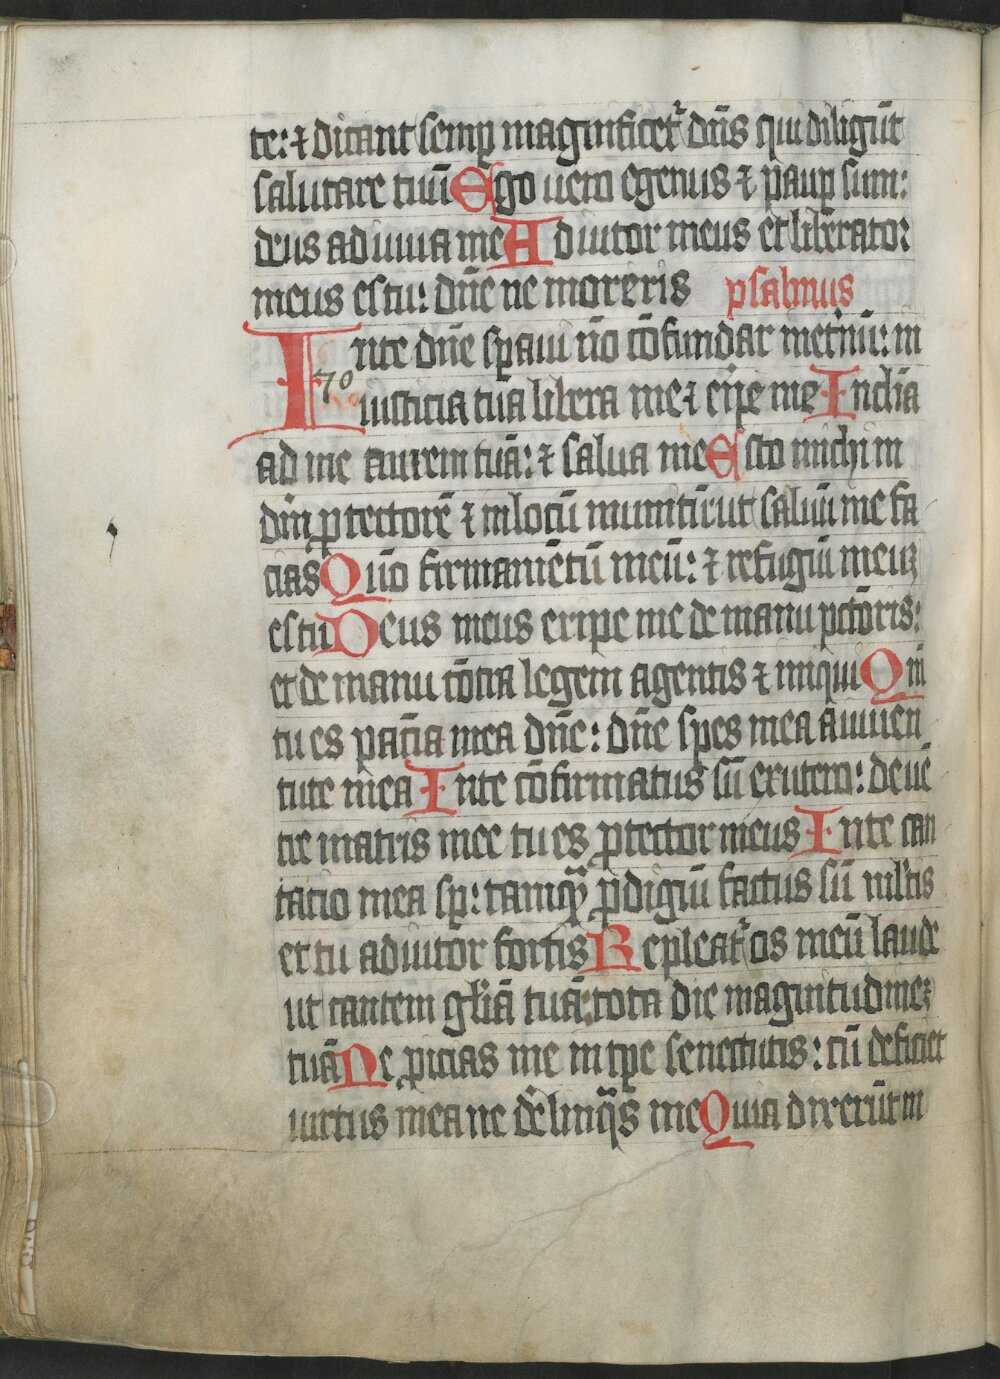 te: ⁊ dicant semꝑ magnificet᷑ dn̄s qui diligūt
salutare tuū Ego uero egenus ⁊ paupꝑ sum:
deus adiuua me Adiutor meus et liberator
meus es tu: dn̄e ne moreris psalmus
In te dn̄e sꝑaui nō cōfundar in et̓nū: in
70
iusticia tua libera me ⁊ eripe me Inclīa
ad me aurem tuā: ⁊ salua me Esto michi in
dm̄ ꝓtectorē ⁊ in locū munitū: ut saluū me fa
cias Qūo firmamētū meū: ⁊ refugiū meuꝫ
es tu Deus meus eripe me de manu pctōris:
et de manu cōtra legem agentis ⁊ iniqui Qm̄
tu es pacīa mea dn̄e: dn̄e spes mea a iuuen
tute mea In te cōfirmatus sū ex utero: de uē
tre matris mee tu es ꝓtector meus In te can
tacio mea sꝑ: tamqꝫ ꝓdigiū factus sū ml̓tis
et tu adiutor fortis Repleat᷑ os meū laude
ut cantem gl̓iam tuā: tota die magnitudineꝫ
tuā Ne ꝓicias me in tpe senectutis: cū deficiet
uirtus mea ne derelinqͣs me Quia dixerūt in